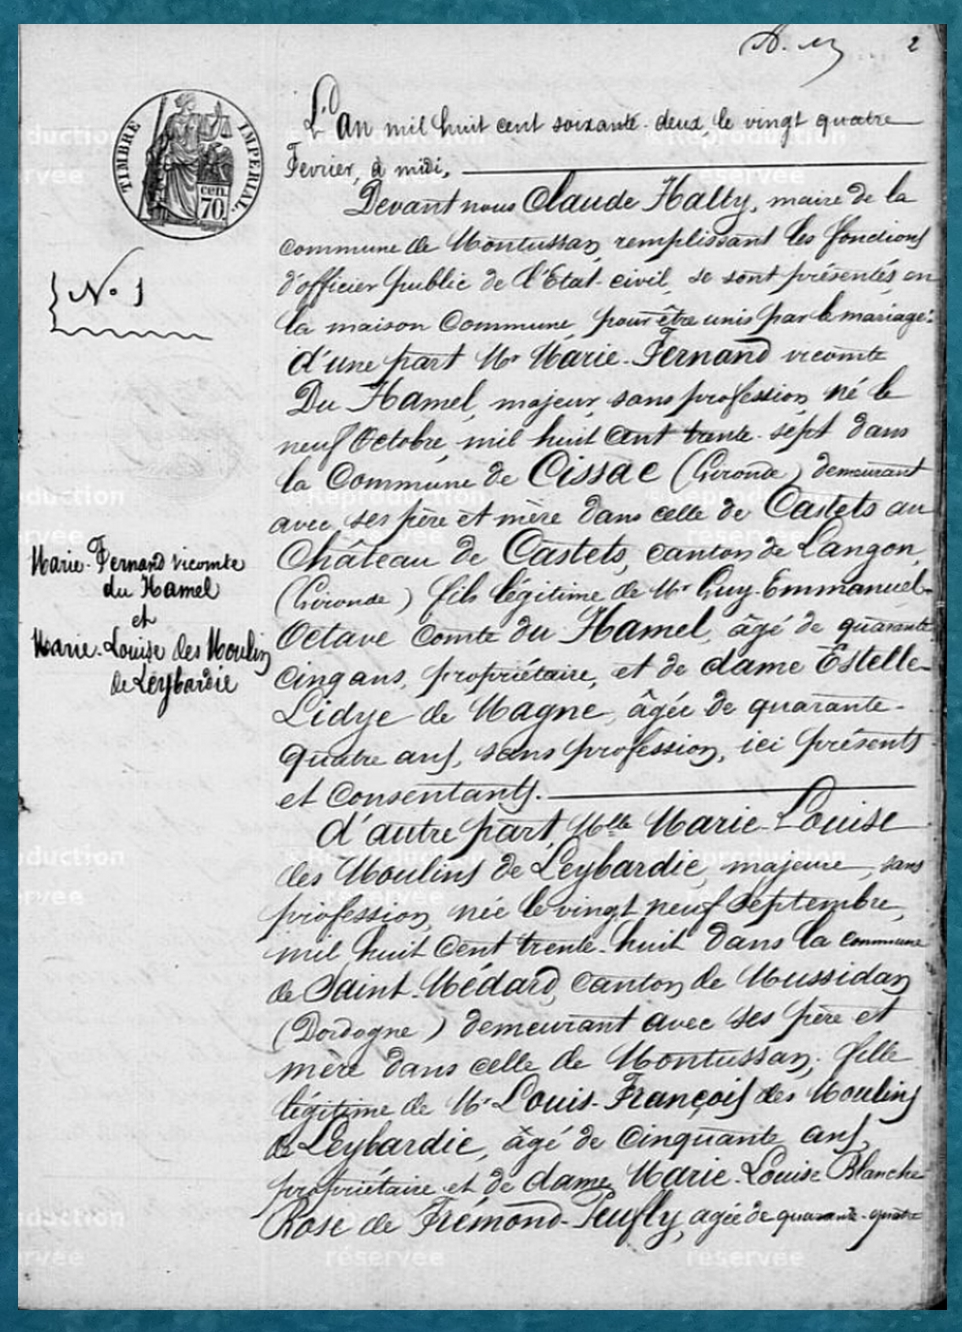 2
TIMBRE IMPÉRIAL.
cen.
70
N.o 1
Marie-Fernand vicomte
du Hamel
et
Marie-Louise des Moulins
de Leybardie
L'An mil huit cent soixante-deux le vingt quatre
Fevrier, à midi,
Devant nous Claude Hally, maire de la
commune de Montussan, remplissant les fonctions
d'officier public de l'Etat-civil, se sont présentés en
la maison Commune, pour être unis par le mariage:
d'une part Mr Marie-Fernand vicomte
Du Hamel, majeur, sans profession, né le
neuf Octobre, mil huit cent trente-sept dans
la Commune de Cissac (Gironde) demeurant
avec ses père et mère dans celle de Castets au
Château de Castets, canton de Langon,
(Gironde) fils légitime de Mr Guy-Emmanuel-
Octave Comte du Hamel, âgé de quarante
cinq ans, propriétaire, et de dame Estelle-
Lidye de Magne, âgée de quarante-
quatre ans, sans profession, ici présents
et consentants.
d'autre part, Mlle Marie-Louise
des Moulins de Leybardie, majeure, sans
profession, née le vingt neuf Septembre,
mil huit cent trente-huit dans la commune
de Saint-Médard, canton de Mussidan
(Dordogne) demeurant avec ses père et
mère dans celle de Montussan, fille
légitime de Mr Louis-François des Moulins
de Leybardie, âgé de cinquante ans,
propriétaire et de dame Marie-Louise Blanche
Rose de Frémond-Peufly, agée de quarante-quatre
© Reproduction
réservée